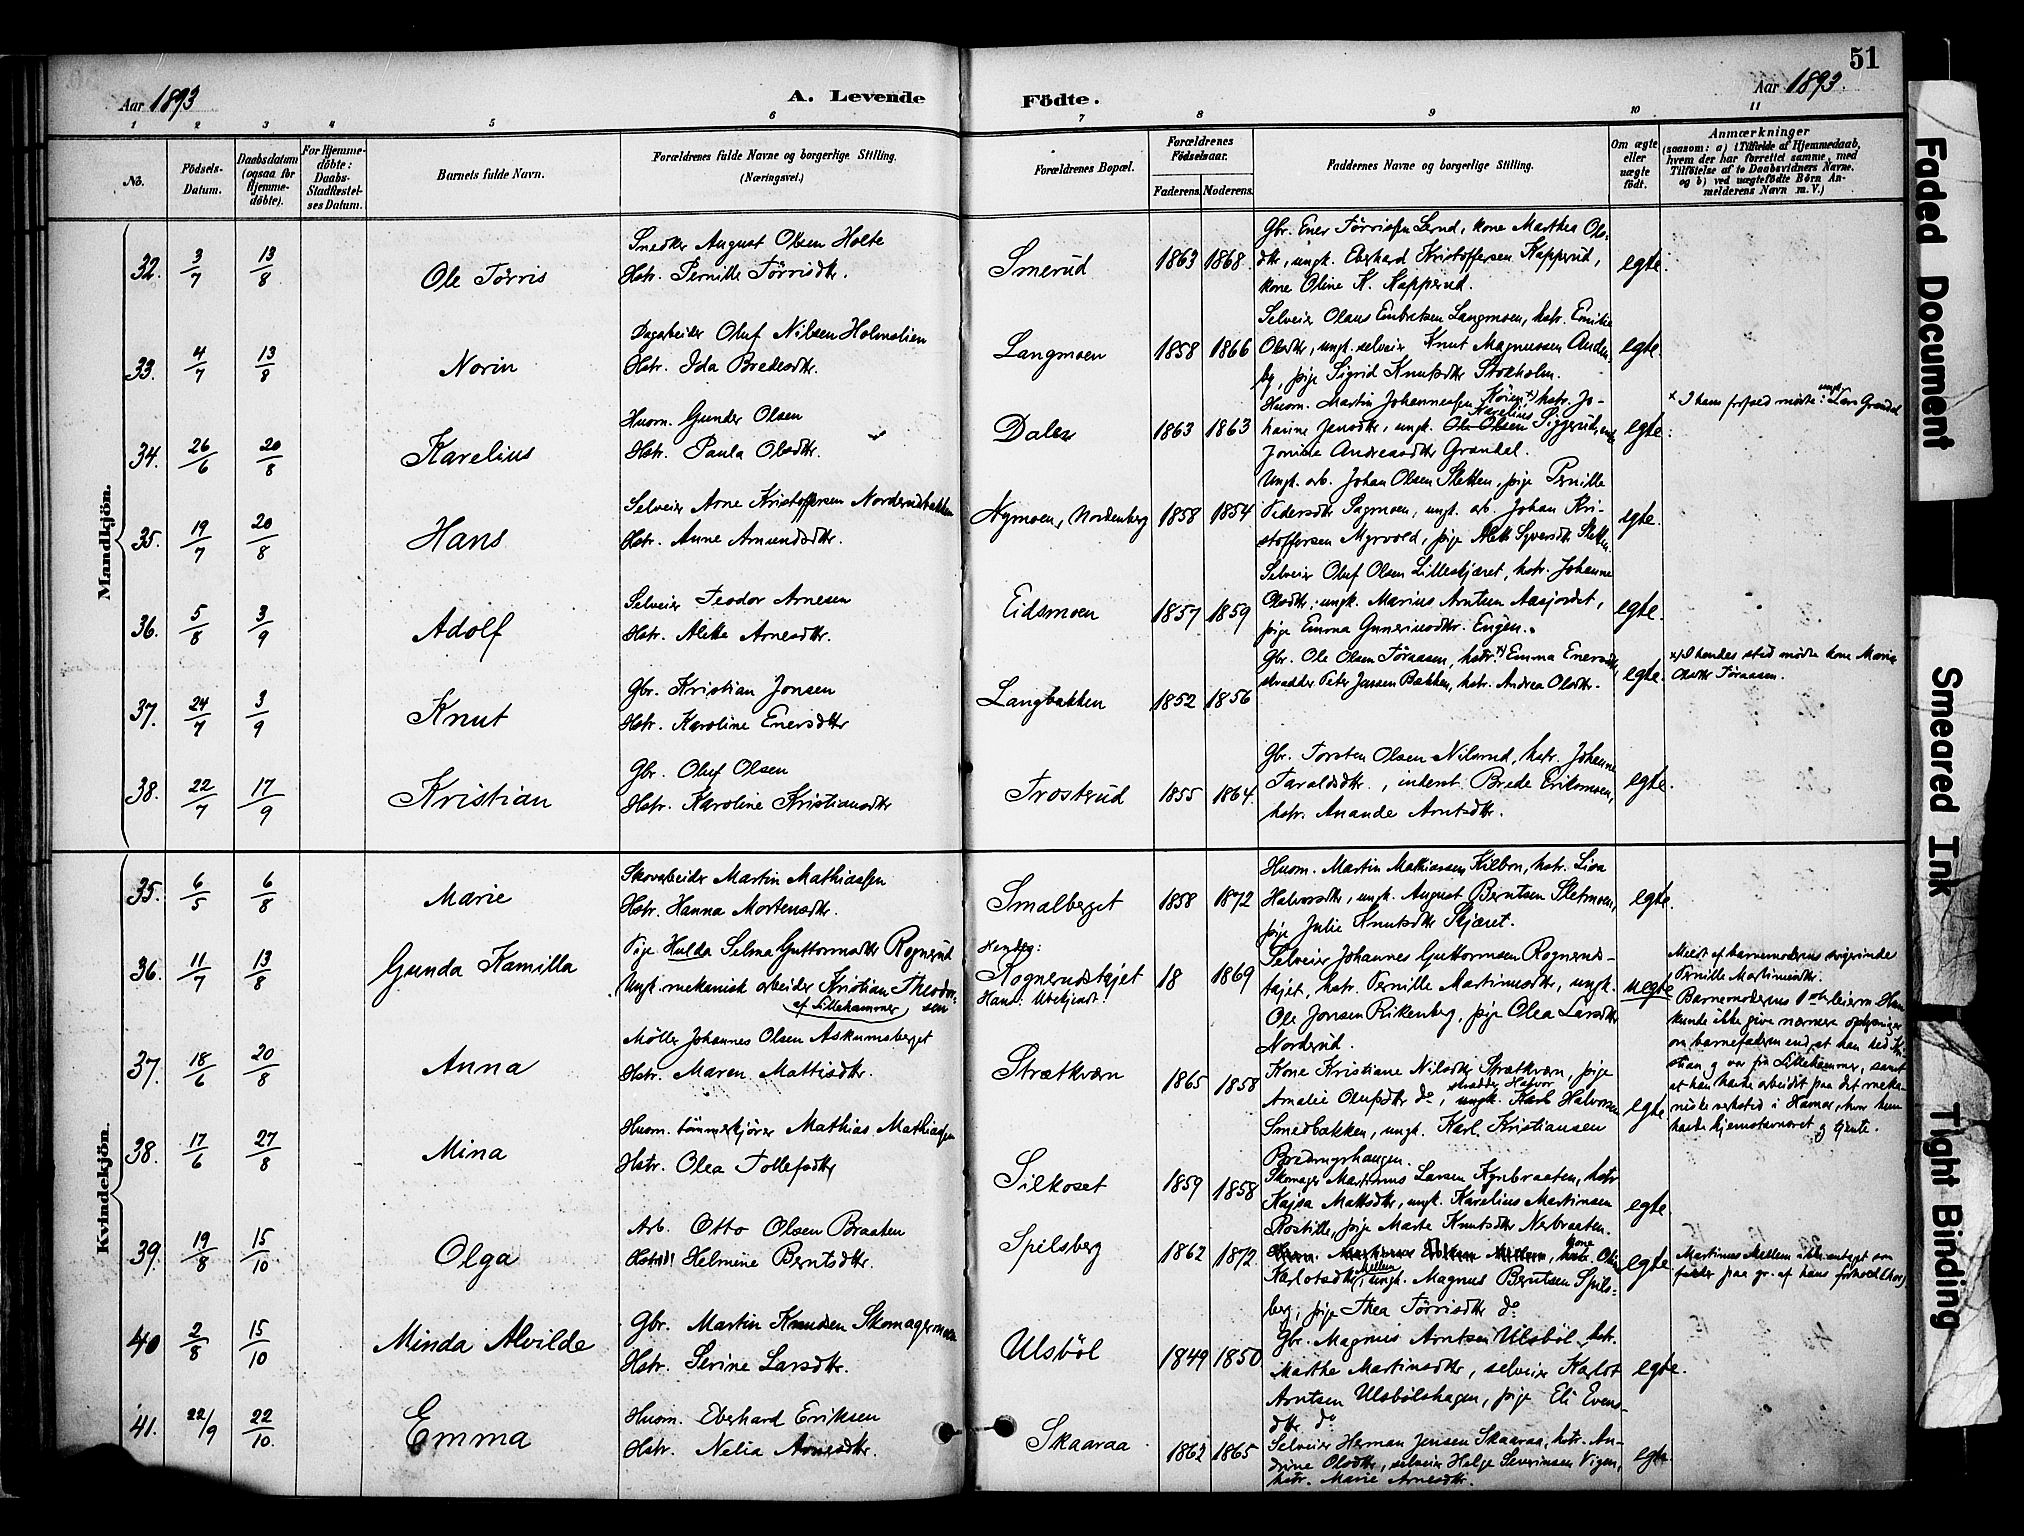 51
Aar 1893
A. Levende Födte.
Aar 1893.
1 2 3 4 5 6 7 8 9 10 11
No.
Födsels-Datum.
Daabsdatum (ogsaa for Hjemme-döbte).
For Hjemme-döbte: Daabs-Stadfæstel-ses Datum.
Barnets fulde Navn.
Forældrenes fulde Navne og borgerlige Stilling. (Næringsvei.)
Forældrenes Bopæl.
Forældrenes Födselsaar.
Faderens. Moderens.
Faddernes Navne og borgerlige Stilling.
Om ægte eller uægte födt.
Anmærkninger
(saasom: a) i Tilfælde af Hjemmedaab, hvem der har forrettet samme, med Tilföielse af to Daabsvidners Navne, og b) ved uægtefödte Börn Anmelderens Navn m. V.)
Mandkjön.
32. 3/7 13/8 Ole Törris
Snedker August Olsen Holte
Hstr. Pernille Törrisdtr.
Smerud 1863 1868.
Gbr. Ener Törrissen Lerud, kone Marthea Ols-
dtr, ungk. Eberhard Kristoffersen Kapperud,
kone Oline K. Kapperud.
egte.
33. 4/7 13/8 Norin
Dagarbeider Oluf Nilsen Holmstien
Hstr. Ida Bredesdtr.
Langmoen 1858 1866
Selveier Olaus Embretsen Langmoen, hstr. Emilie
Olsdtr, ungk. selveier Knut Magnussen Anden
by, pige Sigrid Knutsdtr Stokholm.
egte.
34. 26/6 20/8 Karelius
Husm. Gunder Olsen
Hstr. Paula Olsdtr.
Dalen 1863 1863
Husm. Martin Johannessen x) hstr. Jo-
hanne Jensdtr, ungk. Ole Olsen Karelius Siggerud,
Jorine Andreasdtr Grøndal.
egte.
x I hans forfald mödte: ungk. Lars Grøndal
35. 19/7 20/8 Hans
Selveier Arne Kristoffersen Norderudbakken
Hstr. Anne Amundsdtr.
Nymoen, Nordenberg 1858 1854
Ungk. arb. Johan Olsen Sletten, pige Pernille
Pedersdtr Sagmoen, ungk. arb. Johan Kri-
stoffersen Myrvold, pige Alette Syversdtr Sletten.
egte.
36. 5/8 3/9 Adolf
Selveier Teodor Arnesen
Hstr. Alette Arnesdtr.
Eidsmoen 1857 1859
Selveier Oluf Olsen Lilleskjæret, hstr. Johanne
Olsdtr, ungk. Marius Arntsen Aasjordet,
pige Emma Gunerinsdtr. Engen.
egte.
37. 24/7 3/9 Knut
Gbr. Kristian Jonsen
Hstr. Karoline Enersdtr
Langbakken 1852 1856
Gbr. Ole Olsen Töraasen, hstr. x) Emma Enersdtr,
skradder Peter Jensen Bakken, hstr. Andrea Olsdtr.
egte.
x) I hendes sted mödte kone Maria
Olsdtr Töraasen.
38. 22/7 17/9 Kristian
Gbr. Oluf Olsen
Hstr. Karoline Kristiansdtr
Trostrud 1855 1864.
Gbr. Torsten Olsen Nilsrud, hstr. Johanne
Taraldsdtr., inderst Brede Eriksmoen,
hstr. Anande Arntsdtr.
egte.
Kvindekjön.
35. 6/5 6/8 Marie
Skovarbeider Martin Mathiassen
Hstr. Hanna Mortensdtr.
Smalberget 1858 1872
Husm. Martin Mathiassen Kilbon, hstr. Lisa
Halvorsdtr, ungk. August Berntsen Sletmoen,
pige Julie Knutsdtr Skjæret.
egte.
36. 11/7 13/8 Gunda Kamilla
Pige Hulda Selma Guttormsdtr Rognerud
Ungk. mekanisk arbeider Kristian Theodor-
sen af Lillehammer
Hendes:
Rognerudstajet
Hans: Ubekjendt.
18 1869
Selveier Johannes Guttormsen Rognerud-
tajet, hstr. Pernille Martinusdtr, ungk.
Ole Jonsen Rikenberg, pige Olea Larsdtr
Norderud.
uegte
Meldt af barnemoderens svigerinde
Pernille Martinusdtr.
kunde ikke give nærmere oplysninger
om barnefaderen end at han hed Kri-
stian og var fra Lillehammer, samt
at han havde arbeidet paa det meka-
niske verksted i Hamar, hvor hun
havde hjemstavnsret og tjente.
37. 18/6 20/8 Anna
Möller Johannes Olsen Askumsberget
Hstr. Maren Mattisdtr.
Strætkværn 1865 1858
Kone Kristiane Nilsdtr Strætkværn, pige
Amalie Olufsdtr do, skradder Halvor ungk. Karl Halvorsen
Smedbakken, ungk. Karl Kristiansen
Bredingshaugen.
egte
38. 17/6 27/8 Mina
Husm. tömmerkjører Mathias Mathiassen
Hstr. Olea Tollefsdtr
Silkoset 1859 1858
Skomager Martinus Larsen Kynbraaten, hstr
Kajsa Mattsdtr, ungk. Karelius Martinsen
Rostille, pige Marte Knutsdtr Nerbraaten.
egte.
39. 19/8 15/10 Olga
Arb. Otto Olsen Braaten
Hstr. Helmine Berntsdtr.
Spilsberg 1862 1872.
Husm. Martinus Mellem, hstr. kone Oline
Karlotsdtr Mellem, ungk. Magnus Berntsen Spils-
berg, pige Thea Törrisdtr do
egte
Martinus Mellem ikke antaget som
fadder paa gr. af hans forhold
40 2/8 15/10 Minda Alvilde
Gbr. Martin Knudsen Skomagermoen
Hstr. Serine Larsdtr.
Ulsböl 1849 1850
Gbr. Magnus Arntsen Ulsböl, hstr.
Marthe Martinsdtr, selveier Karlot
Arntsen Ulsbölshagen, pige Eli Evens-
dtr do
egte.
41. 22/9 22/10. Emma
Husm. Eberhard Eriksen
Hstr. Nelia Arnesdtr.
Skaaraa 1862 1865
Selveier Herman Jensen Skaaraa, hstr. An-
drine Olsdtr, selveier Helge Severinsen Vigen,
hstr. Marie Arnesdtr.
egte
Faded Document
Smeared Ink
Tight Binding